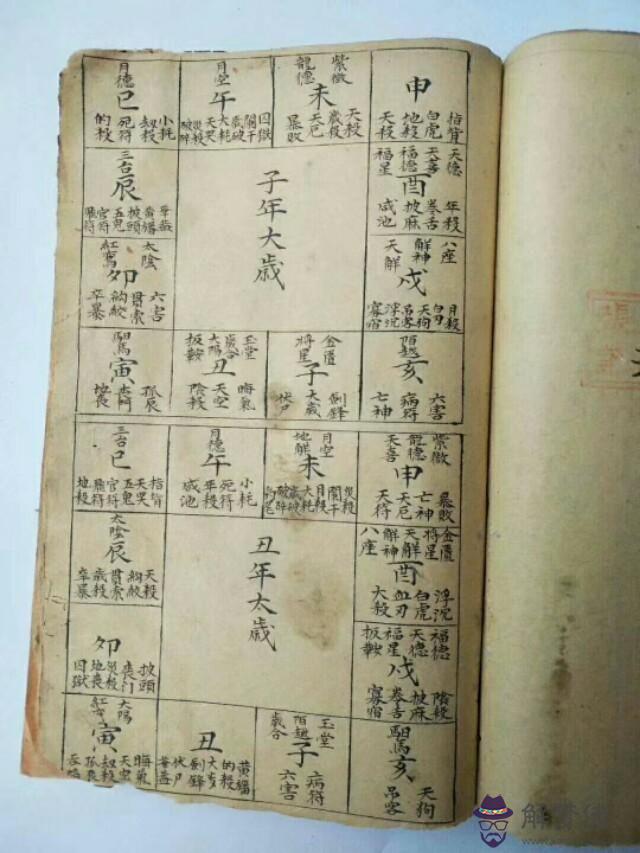 月德
巳
小耗
劫殺
死符
的殺
月空
午
囚獄
闌干
歲破
大耗
天哭
災殺
破碎
紫微
龍德
未
天殺
歲殺
天厄
暴敗
申
指背
白虎
地殺
天殺
三台
辰
黃旛
披頭
五鬼
官符
飛符
子年大歲
天德
天喜
福德
福星
酉
年殺
卷舌
披麻
咸池
太陰
紅鸞
卯
六害
貫索
勾絞
卒暴
八座
解神
天解
戌
月殺
白刃
天狗
吊客
浮沉
寡宿
馹馬
寅
孤辰
喪門
地喪
玉堂
歲合
太陽
板鞍
丑
晦氣
天空
陰殺
金匱
將星
子
劍鋒
大歲
伏尸
陌越
亥
六害
病符
亡神
三台
巳
指背
天哭
五鬼
官符
飛符
地殺
月德
午
小耗
死符
年殺
咸池
月空
地解
未
災殺
闌干
月殺
大耗
歲破
破碎
紫微
龍德
天喜
申
暴敗
亡神
天厄
天符
太陰
辰
天殺
勾絞
貫索
歲殺
卒暴
丑年太歲
金匱
將星
天解
解神
八座
酉
浮沉
白虎
血刃
大殺
卯
披頭
喪門
災殺
地喪
囚獄
福德
天德
福星
板鞍
戌
陰殺
披麻
卷舌
寡宿
太陽
寅
晦氣
天空
劫殺
孤辰
丑
黃旛
的殺
大歲
劍鋒
伏尸
玉堂
陌越
歲合
子
病符
六害
馹馬
亥
天狗
吊客